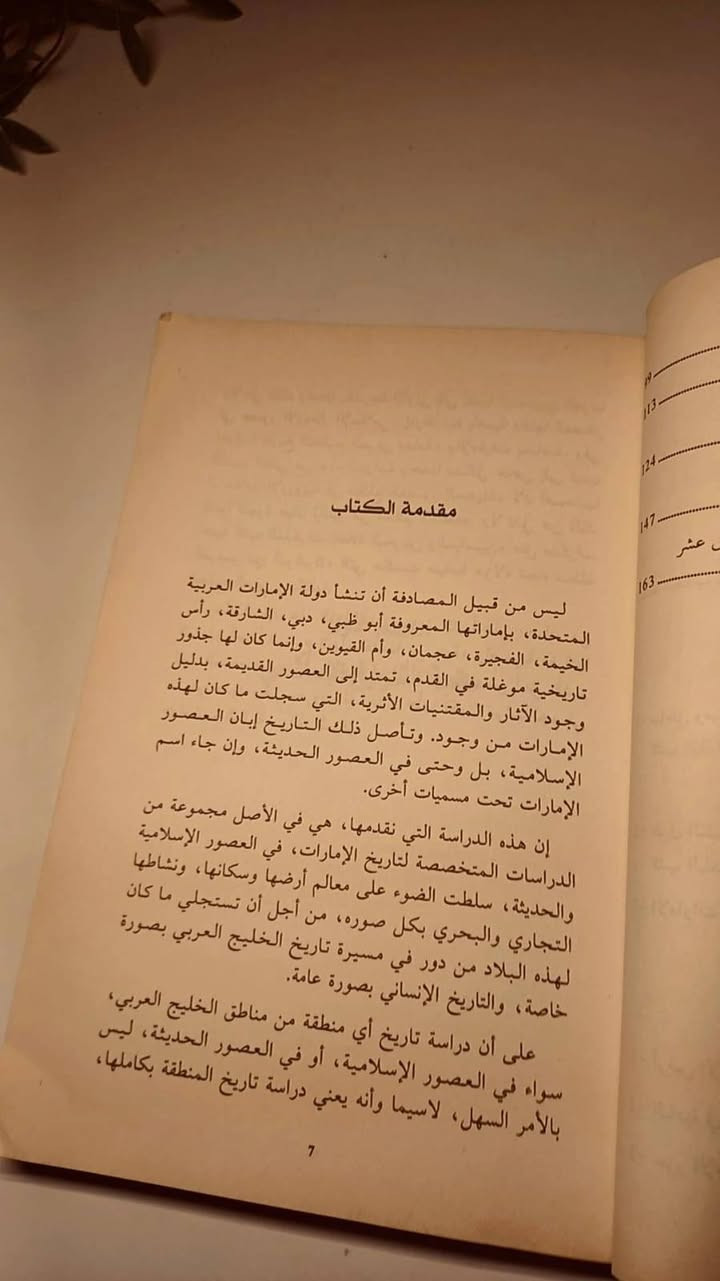 مقدمة الكتاب
ليس من قبيل المصادفة أن تنشأ دولة الإمارات العربية
المتحدة، بإماراتها المعروفة أبو ظبي، دبي، الشارقة، رأس
الخيمة، الفجيرة، عجمان، وأم القيوين، وإنما كان لها جذور
تاريخية موغلة في القدم، تمتد إلى العصور القديمة، بدليل
وجود الآثار والمقتنيات الأثرية، التي سجلت ما كان لهذه
الإمارات من وجود. وتأصل ذلك التاريخ إبان العصور
الإسلامية، بل وحتى في العصور الحديثة، وإن جاء اسم
الإمارات تحت مسميات أخرى.
إن هذه الدراسة التي نقدمها، هي في الأصل مجموعة من
الدراسات المتخصصة لتاريخ الإمارات، في العصور الإسلامية
والحديثة، سلطت الضوء على معالم أرضها وسكانها، ونشاطها
التجاري والبحري بكل صوره، من أجل أن تستجلي ما كان
لهذه البلاد من دور في مسيرة تاريخ الخليج العربي بصورة
خاصة، والتاريخ الإنساني بصورة عامة.
على أن دراسة تاريخ أي منطقة من مناطق الخليج العربي،
سواء في العصور الإسلامية، أو في العصور الحديثة، ليس
بالأمر السهل، لاسيما وأنه يعني دراسة تاريخ المنطقة بكاملها،
7
113
124
147
عشر
163